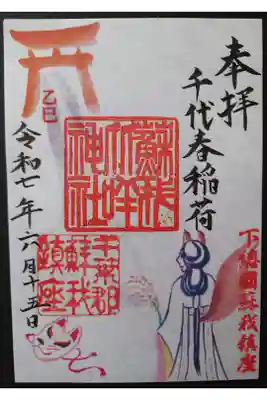 奉拝
千代春稲荷
下總國蘇我鎮座
蘇我
比咩
神社
千葉郡
蘇我
鎮座
乙巳
令和七年六月十五日